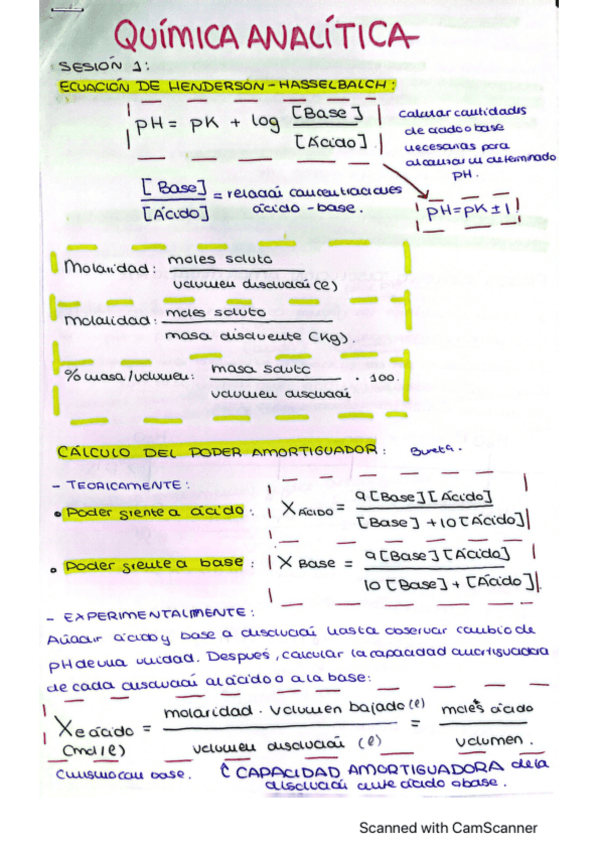 QUÍMICA ANALÍTICA
SESIÓN 1:
ECUACIÓN DE HENDERSON-HASSELBALCH:
pH = pK + log [Base] / [Ácido]
calcular cantidades
de ácido o base
necesarias para
alcanzar un determinado
pH.
[Base] / [Ácido] = relación concentraciones
ácido-base.
pH = pK ± 1
Molaridad: moles soluto / volumen disolución (l)
Molalidad: moles soluto / masa disolvente (kg).
% masa/volumen: masa soluto / volumen disolución · 100.
CÁLCULO DEL PODER AMORTIGUADOR: Bureta.
- TEORICAMENTE:
• Poder frente a ácido: X ÁCIDO = 9[Base][Ácido] / [Base] + 10[Ácido]
• Poder frente a base: X Base = 9[Base][Ácido] / 10[Base] + [Ácido]
- EXPERIMENTALMENTE:
Añadir ácido y base a disolución hasta observar cambio de
pH de una unidad. Después, calcular la capacidad amortiguadora
de cada disolución al ácido o a la base:
Xe ácido (mol/l) = molaridad · volumen bajado (l) / volumen disolución (l) = moles ácido / volumen.
Lo mismo con base.
CAPACIDAD AMORTIGUADORA de la
disolución ante ácido o base.
Scanned with CamScanner